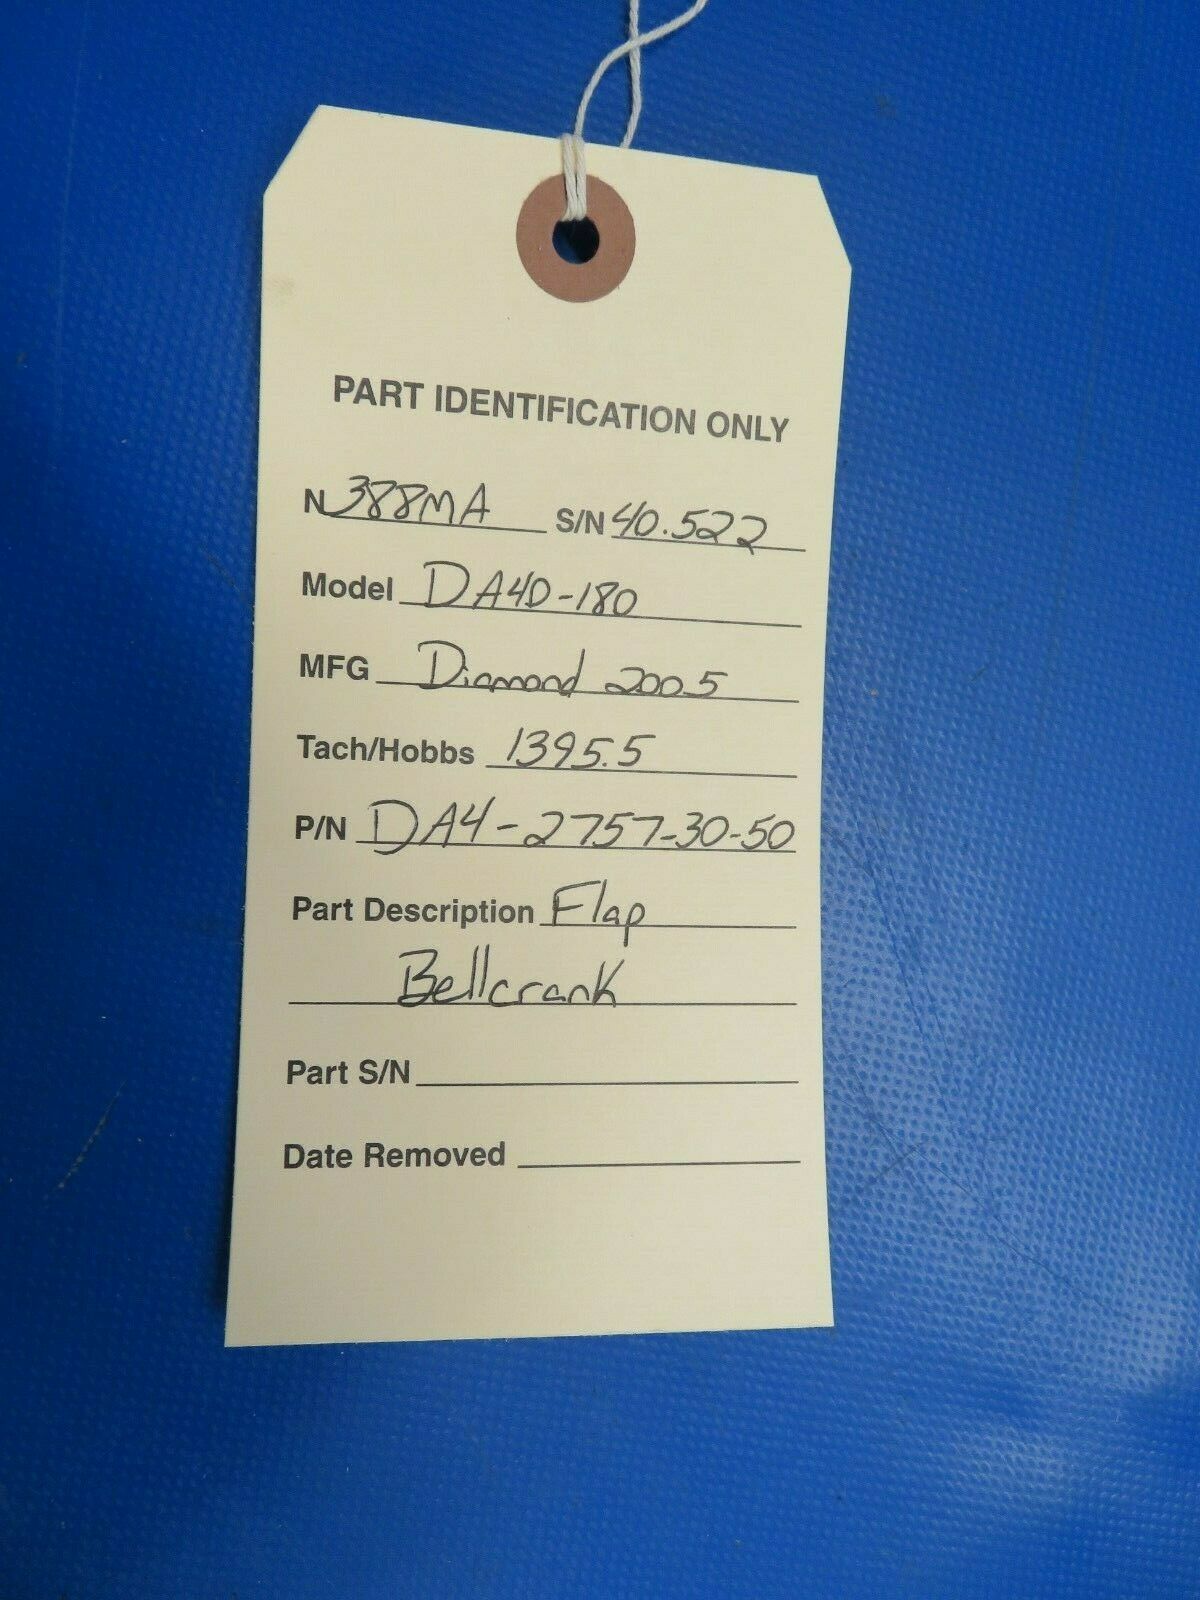 PART IDENTIFICATION ONLY
N 388MA S/N 40.522
Model DA40-180
MFG Diamond 2005
Tach/Hobbs 1395.5
P/N DA4-2757-30-50
Part Description Flap
Bellcrank
Part S/N
Date Removed